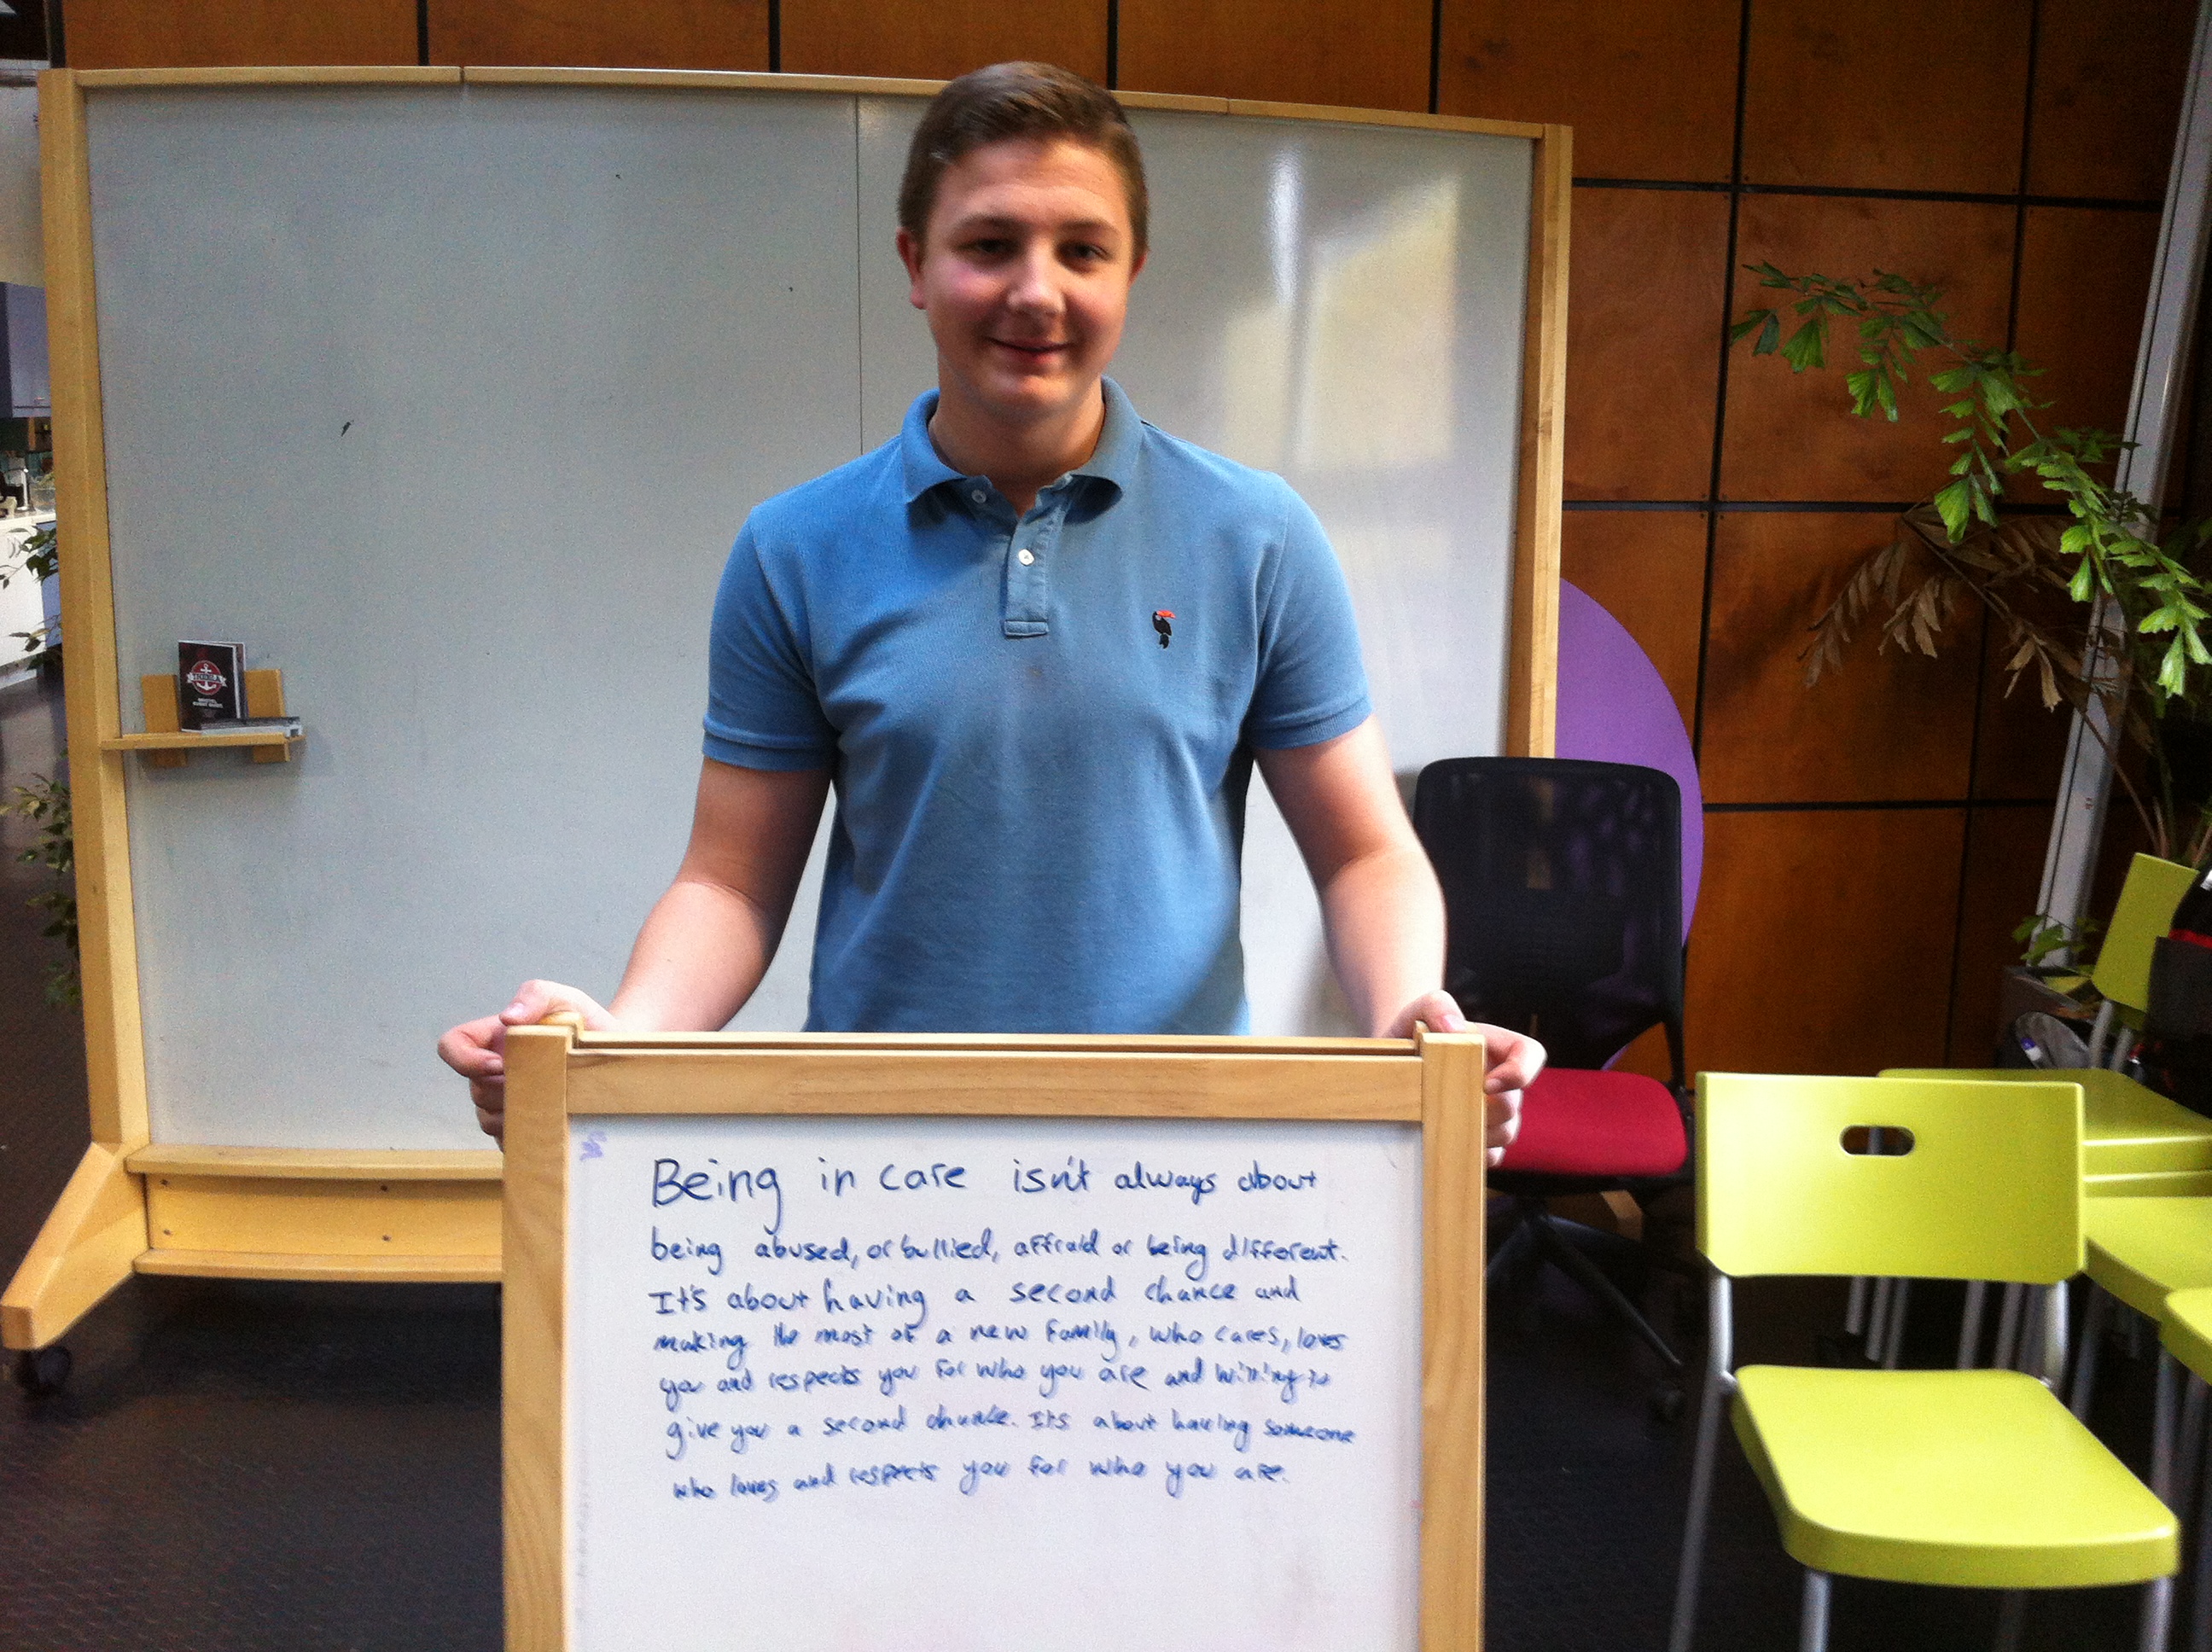 THEKLA
Being in care isn't always about
being abused, or bullied, affraid or being different.
It's about having a second chance and
making the most of a new family, who cares, loves
you and respects you for who you are and willing to
give you a second chance. It's about having someone
who loves and respects you for who you are.